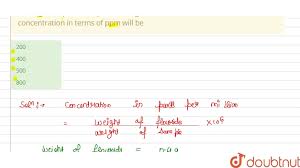 concentration in terms of ppm will be
200
400
500
800
Solⁿ :- Concentration in parts per million
= weight of flouride × 10⁶
weight of Sample
weight of flouride =
doubtnut